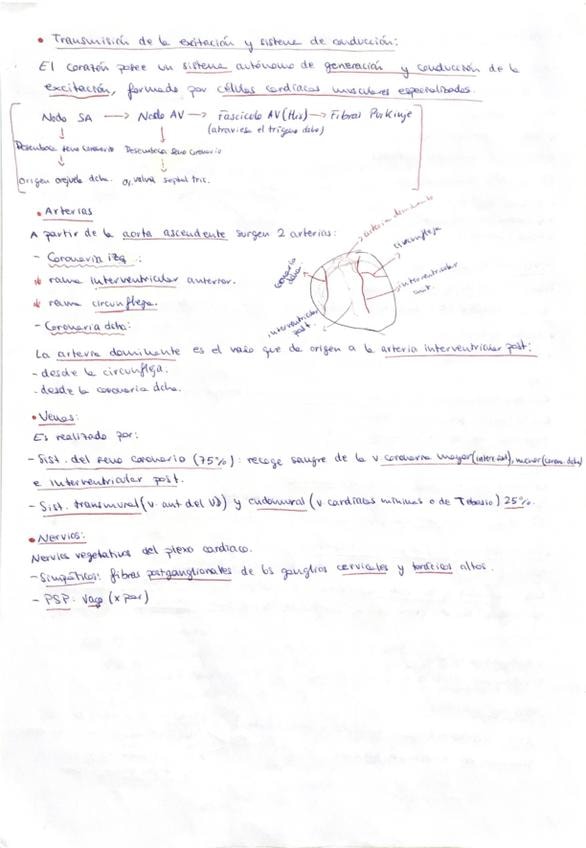 • Transmisión de la excitación y sistema de conducción:
El corazón posee un sistema autónomo de generación y conducción de la
excitación, formado por células cardíacas musculares especializadas.
Nodo SA → Nodo AV → Fascículo AV (His) → Fibras Purkinje
(atraviesa el trígono dcho)
Desemboca seno coronario Desemboca seno coronario
Origen orejuela dcha. Or. valva septal tric.
• Arterias
A partir de la aorta ascendente surgen 2 arterias:
- Coronaria izq:
rama interventricular anterior.
rama circunfleja.
- Coronaria dcha:
arteria dominante
circunfleja
coronaria dcha.
interventricular ant.
interventricular post.
La arteria dominante es el vaso que da origen a la arteria interventricular post:
- desde la circunfleja.
- desde la coronaria dcha.
• Venas:
Es realizado por:
- Sist. del seno coronario (75%): recoge sangre de la v coronaria mayor (inter), menor (coron. dcha)
e interventricular post.
- Sist. transmural (v. ant del VD) y endomural (v cardíacas mínimas o de Tebesio) 25%.
• Nervios:
Nervios vegetativos del plexo cardíaco.
- Simpáticos: fibras postganglionales de los ganglios cervicales y torácicos altos.
- PSP: vago (X par)